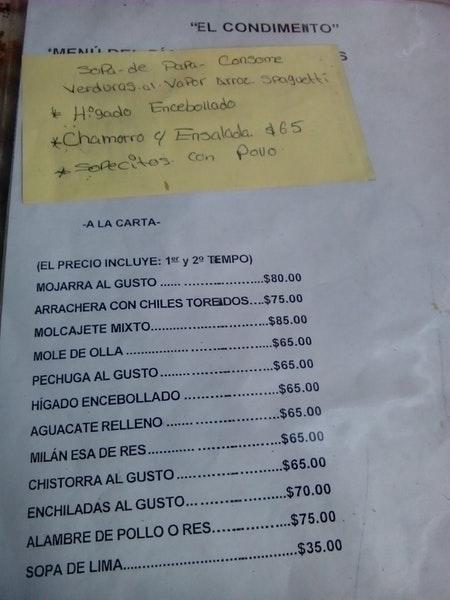 "EL CONDIMENTO"
Sopa de Papa - Consome
Verduras al Vapor Arroz Spaguetti
* Higado Encebollado
* Chamorro y Ensalada $65
* Sopecitos con Pollo
-A LA CARTA-
(EL PRECIO INCLUYE: 1er y 2º TEMPO)
MOJARRA AL GUSTO ...................$80.00
ARRACHERA CON CHILES TOREADOS...$75.00
MOLCAJETE MIXTO..........................$85.00
MOLE DE OLLA ................................$65.00
PECHUGA AL GUSTO ........................$65.00
HÍGADO ENCEBOLLADO ...................$65.00
AGUACATE RELLENO .......................$65.00
MILÁN ESA DE RES...........................$65.00
CHISTORRA AL GUSTO .....................$65.00
ENCHILADAS AL GUSTO....................$70.00
ALAMBRE DE POLLO O RES...............$75.00
SOPA DE LIMA..................................$35.00